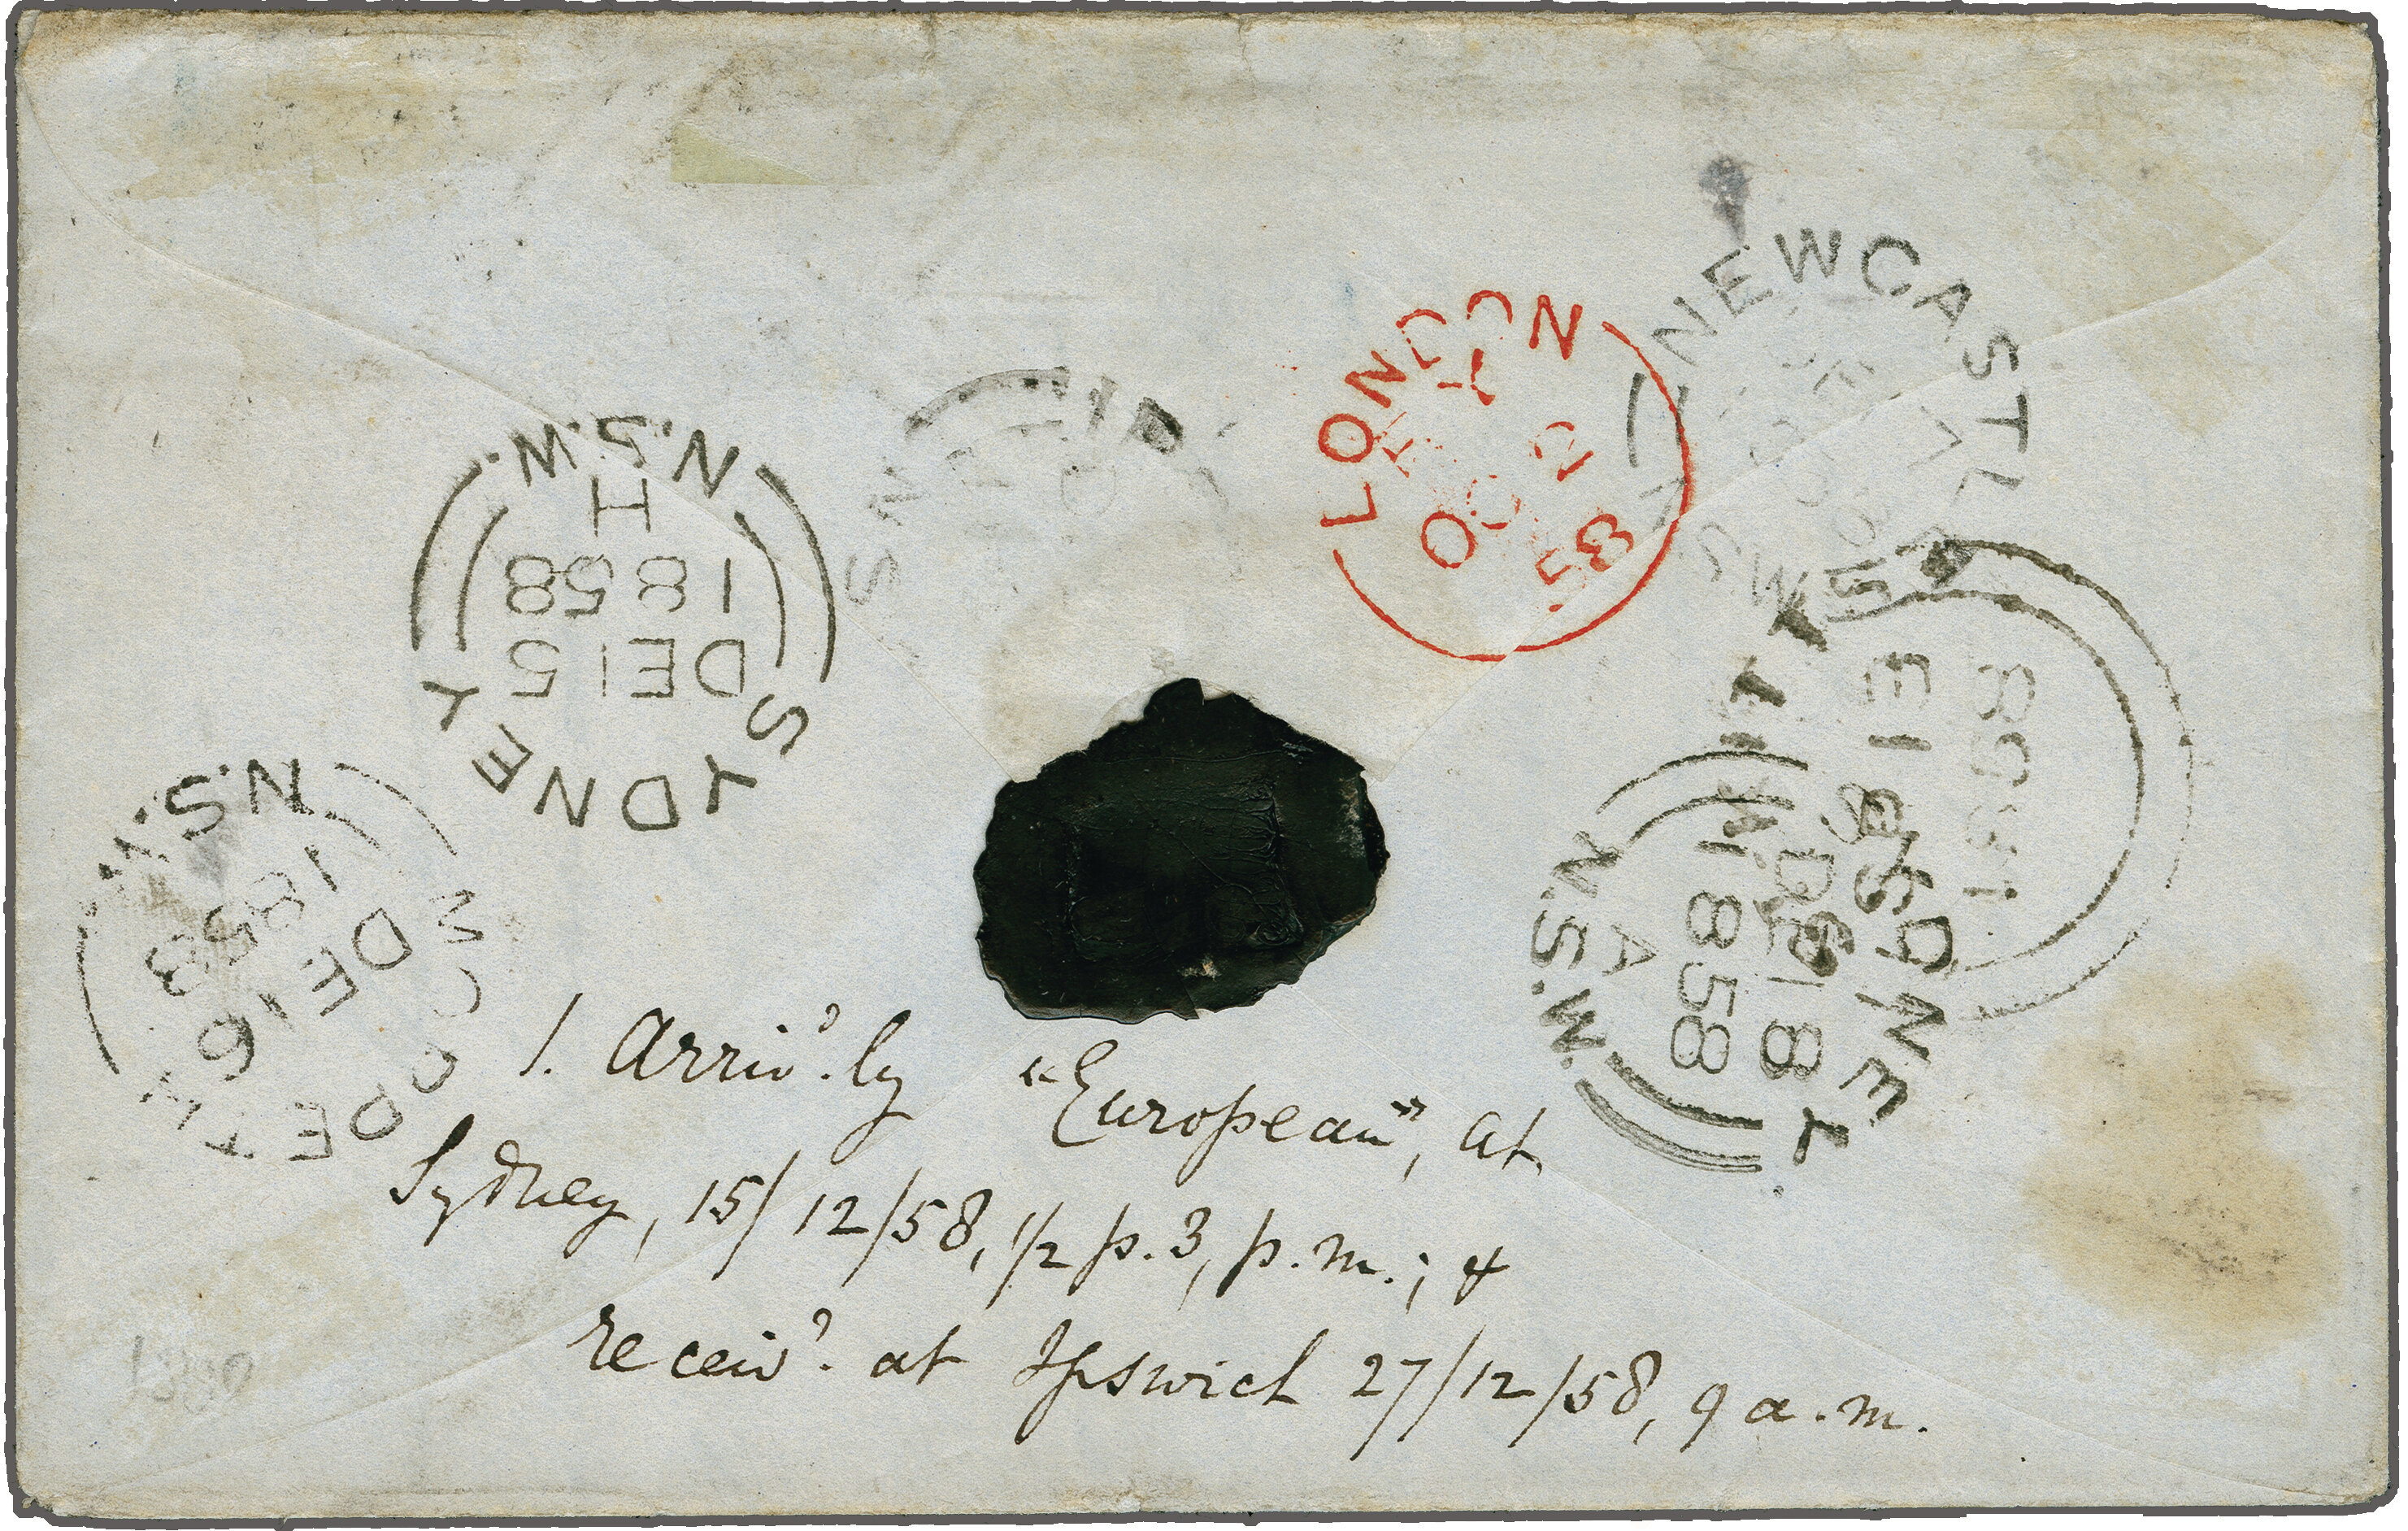 N.S.W.
H
1858
DE 15
SYDNEY
LONDON
OC 2
58
NEWCASTLE
N.S.W
1858
DE 16
N.S.W.
A
1858
DE 18
SYDNEY
1. Arriv'd. by "European", at
Sydney, 15/12/58, 1/2 p. 3, p.m.; &
receiv'd. at Ipswich 27/12/58, 9 a.m.